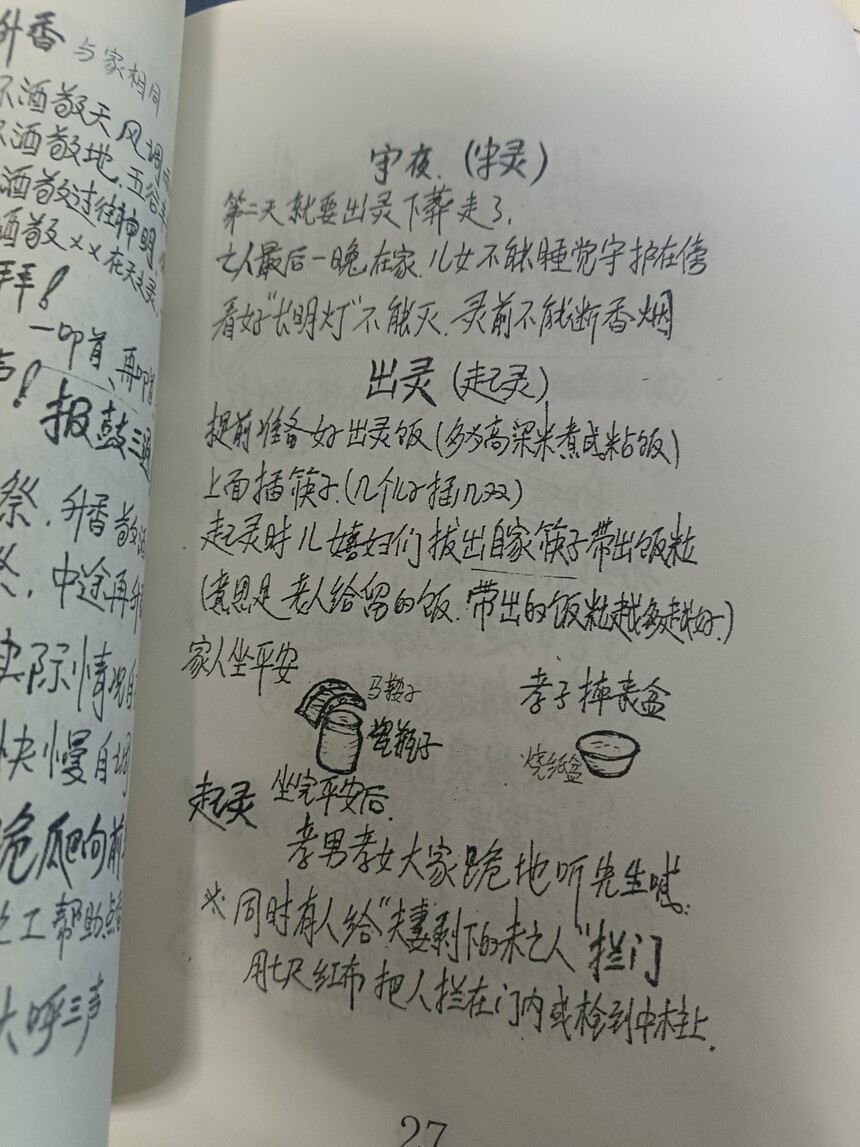 升香 与家相同
酒敬天 风调
酒敬地.五谷
酒敬过往神明
酒敬××在天之灵.
拜！
一叩首、再叩首
声！
报鼓三通
祭.升香敬酒
中途再升
实际情况自
快慢自调
跪爬向前
工帮助
大呼三声
守夜.(伴灵)
第二天就要出灵下葬走了.
亡人最后一晚在家.儿女不能睡觉守护在傍
看好"长明灯"不能灭.灵前不能断香烟
出灵(起灵)
提前准备好出灵饭(多为高梁米煮成粘饭)
上面插筷子.(几个儿子插几双)
起灵时儿媳妇们拔出自家筷子带出饭粒
(意思是老人给留的饭.带出的饭粒越多越好.)
家人坐平安
马鞍子
瓷瓶子
孝子摔丧盆
烧纸盆
起灵 坐完平安后.
孝男孝女大家跪地听先生喊.
※同时有人给"夫妻剩下的未亡人"拦门
用七尺红布把人拦在门内或栓到中柱上.
27